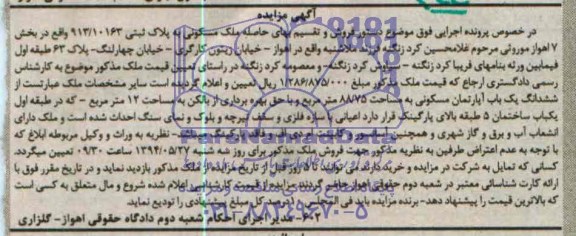 آگهی مزایده
در خصوص پرونده اجرایی فوق موضوع دستور فروش و تقسیم بهای حاصله ملک مسکونی به پلاک ثبتی ۹۱۳/۱۰۱۶۳ واقع در بخش
۷ اهواز موروثی مرحوم غلامحسین کرد زنگنه فرزند ملاشنبه واقع در اهواز - خیابان زیتون کارگری - خیابان چهارلنگ- پلاک ۶۳ طبقه اول
فیمابین ورثه بنامهای فریبا کرد زنگنه - کرد زنگنه- و معصومه کرد زنگنه در راستای تعیین قیمت ملک مذکور موضوع به کارشناس
رسمی دادگستری ارجاع که قیمت ملک مذکور مبلغ ۱/۲۸۶/۸۷۵/۰۰۰ ریال تعیین و اعلام گردیده است سایر مشخصات ملک عبارتست از
ششدانگ یک باب آپارتمان مسکونی به مساحت ۸۸/۷۵ متر مربع و با حق بهره برداری از بالکن به مساحت ۱۲ متر مربع - که در طبقه اول
یکباب ساختمان ۵ طبقه بالای پارکینگ قرار دارد اعیانی با سازه فلزی و سقف تیرچه و بلوک و نمای سنگ احداث شده است و ملک دارای
انشعاب آب و برق و گاز شهری و همچنین آسانسور و فاقد پارکینگ - نظریه به وراث و وکیل مربوطه ابلاغ که
با توجه به عدم اعتراض طرفین به نظریه مذکور جهت فروش ملک مذکور برای روز سه شنبه ۱۳۹۴/۰۵/۲۷ ساعت ۰۹/۳۰ تعیین میگردد.
کسانی که تمایل به شرکت در مزایده و خرید دارند می توانند تا ۵ روز قبل از تاریخ مزایده از ملک مذکور بازدید نماید و در تاریخ مقرر فوق با
ارائه کارت شناسائی معتبر در شعبه دوم حقوقی اهواز حاضر گردند مزایده از قیمت کارشناسی اعلام شده شروع و مال متعلق به کسی است
که بالاترین قیمت را پیشنهاد دهد- برنده مزایده باید فی المجلس ۱۰ درصد کل مبلغ پیشنهادی را تودیع نماید.
۶۰۲- مدیر اجرای احکام شعبه دوم دادگاه حقوقی اهواز- گلزاری
ParsNamadData
۰۲۱-۸۸۳۴۹۶۷۰-۵